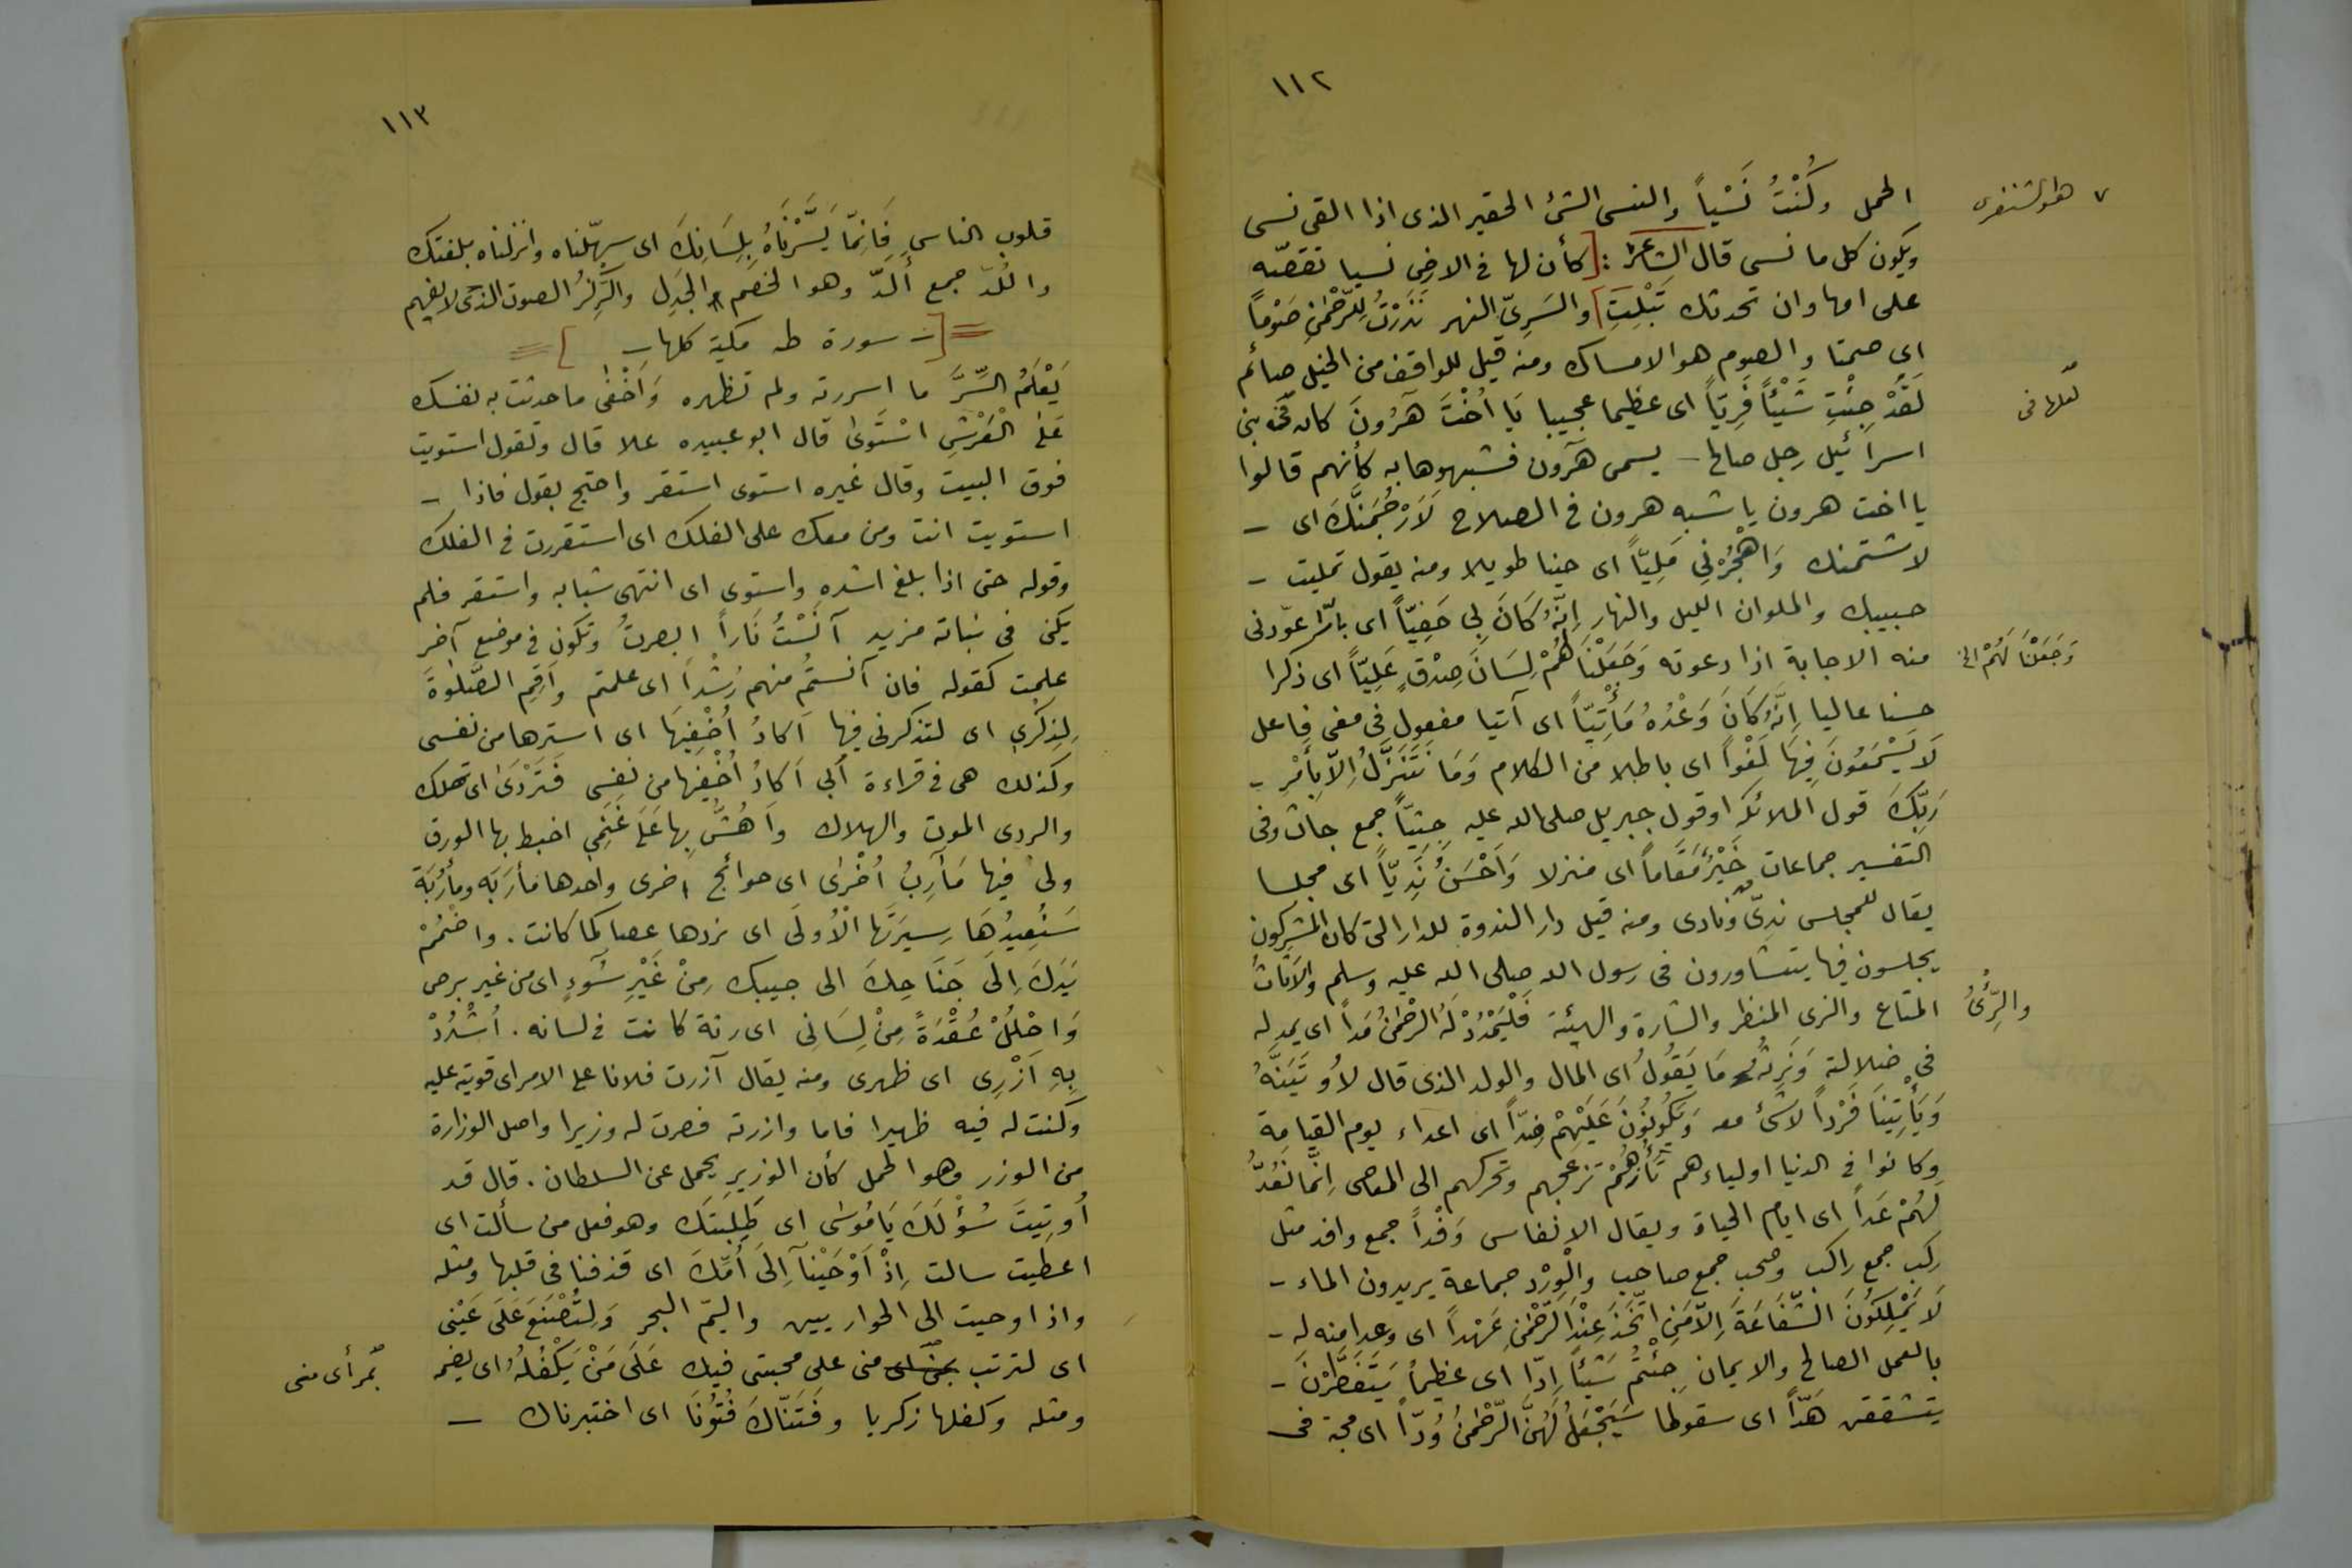 ١١٢
الحمل وكُنْتُ نَسْياً والنسى الشئ الحقير الذى اذا القى نسى
٧ هو الشنفرى
ويكون كل ما نسى قال الشاعر٧ : [كأن لها فى الارض نسيا تقصّه
على امها وان تحدثك تَبْلِتِ] والسَرِىّ النهر نَذَرْتُ لِلرَّحْمٰنِ صَوْماً
اى صمتا والصوم هو الامساك ومنه قيل للواقف من الخيل صائم
لَقَدْ جِئْتِ شَيْئاً فَرِيّاً اى عظيما عجيبا يَا اُخْتَ هَرُونَ كان فى بنى
لعلها فى
اسرائيل رجل صالح – يسمى هَرون فشبهوها به كأنهم قالوا
يا اخت هرون يا شبه هرون فى الصلاح لَاَرْجُمَنَّكَ اى –
لاشتمنك وَاهْجُرْنِي مَلِيّاً اى حينا طويلا ومنه يقول تمليت –
حبيبك والملوان الليل والنهار اِنَّهُ كَانَ بِي حَفِيّاً اى بارّا عوّدنى
منه الاجابة اذا دعوته وَجَعَلْنَا لَهُمْ لِسَانَ صِدْقٍ عَلِيّاً اى ذكرا
وَجَعَلْنَا لَهُمْ الخ
حسنا عاليا اِنَّهُ كَانَ وَعْدُهُ مَأْتِيّاً اى آتيا مفعول فى معنى فاعل
لَا يَسْمَعُونَ فِيهَا لَغْواً اى باطلا من الكلام وَمَا نَتَنَزَّلُ اِلَّا بِأَمْرِ –
رَبِّكَ قول الملائكة او قول جبريل صلى الله عليه جِثِيّاً جمع جاث وفى
التفسير جماعات خَيْرٌ مَقَاماً اى منزلا وَاَحْسَنُ نَدِيّاً اى مجلسا
يقال للمجلس ندىّ ونادى ومنه قيل دار الندوة للدار التى كان المشركون
يجلسون فيها يتشاورون فى رسول الله صلى الله عليه وسلم والاَثَاثُ
المتاع والزى المنظر والشارة والهيئة فَلْيَمْدُدْ لَهُ الرَّحْمٰنُ مَداً اى يمد له
والرِّئْىُ
فى ضلالته وَنَرِثُهُ مَا يَقُولُ اى المال والولد الذى قال لأُوتَيَنَّهُ
وَيَأْتِينَا فَرْداً لا شئ معه وَيَكُونُونَ عَلَيْهِمْ ضِدّاً اى اعداء يوم القيامة
وكانوا فى الدنيا اولياءهم تَأُزُّهُمْ تزعجهم وتحركهم الى المعاصى اِنَّمَا نَعُدُّ
لَهُمْ عَداً اى ايام الحياة ويقال الانفاس وَفْداً جمع وافد مثل
ركب جمع راكب وصحب جمع صاحب والْوِرْد جماعة يريدون الماء –
لَا يَمْلِكُونَ الشَّفَاعَةَ اِلَّا مَنِ اتَّخَذَ عِنْدَ الرَّحْمٰنِ عَهْداً اى وعدا منه له –
بالعمل الصالح والايمان جِئْتُمْ شَيْئاً اِدّا اى عظيماً يَتَفَطَّرْنَ –
يتشققن هَدّاً اى سقوطا سَيَجْعَلُ لَهُمُ الرَّحْمٰنُ وُدّاً اى محبة فى
١١٣
قلوب الناس فَاِنَّمَا يَسَّرْنَاهُ بِلِسَانِكَ اى سهّلناه وانزلناه بلغتك
واللُدّ جمع أَلدّ وهو الخصم الجَدِلِ والرِّكْزُ الصوت الذى لا يفهم
[ – سورة طه مكية كلها – ]
يَعْلَمُ السِّرَّ ما اسررته ولم تظهره وَاَخْفٰى ما حدثت به نفسك
عَلَى الْعَرْشِ اسْتَوَىٰ قال ابو عبيده علا قال وتقول استويت
فوق البيت وقال غيره استوى استقر واحتج بقول فاذا –
استويت انت ومن معك على الفلك اى استقررت فى الفلك
وقوله حتى اذا بلغ اشده واستوى اى انتهى شبابه واستقر فلم
يكن فى نباته مزيد آنَسْتُ نَاراً ابصرتُ وتكون فى موضع آخر
علمت كقوله فان آنستُم منهم رُشْداً اى علمتم وَاَقِمِ الصَّلوٰةَ
لِذِكْرِي اى لتذكرنى فيها اَكَادُ أُخْفِيهَا اى استرها من نفسى
وكذلك هى فى قراءة أُبي اَكادُ اُخْفِيهَا من نفسى فَتَرْدَىٰ اى تهلك
والردى الموت والهلاك واَهُشُّ بِها عَلَى غَنَمِي اخبط بها الورق
ولىَ فيها مَآرِبُ اُخْرَىٰ اى حوائج اخرى واحدها مأرَبَة ومأرُبَة
سَنُعِيدُهَا سِيرَتَهَا الْاُولَى اى نردها عصا كما كانت . واضْمُمْ
يَدَكَ اِلَى جَنَاحِكَ الى جيبك مِنْ غَيْرِ سُوءٍ اى من غير برص
وَاحْلُلْ عُقْدَةً مِنْ لِسَانِي اى رتة كانت فى لسانه . اُشْدُدْ
بِهِ اَزْرِى اى ظهرى ومنه يقال آزرت فلانا على الامر اى قويته عليه
وكنت له فيه ظهيرا فاما وازرته فصرت له وزيرا واصل الوزارة
من الوزر وهو الحمل كأن الوزير يحمل عن السلطان . قال قد
اُوتِيتَ سُؤْلَكَ يَا مُوسَى اى طَلِبتَك وهو فعل من سألت اى
اعطيت سالت اِذْ اَوْحَيْنَا اِلَى اُمِّكَ اى قذفنا فى قلبها ومثله
واذ اوحيت الى الحواريين واليَمّ البحر وَلِتُصْنَعَ عَلَى عَيْنِى
اى لترتب منى على محبتى فيك عَلَى مَنْ يَكْفُلُهُ اى يضمه
بمرأى منى
ومثله وكفلها زكريا وفَتَنَّاكَ فُتُونَا اى اختبرناك –